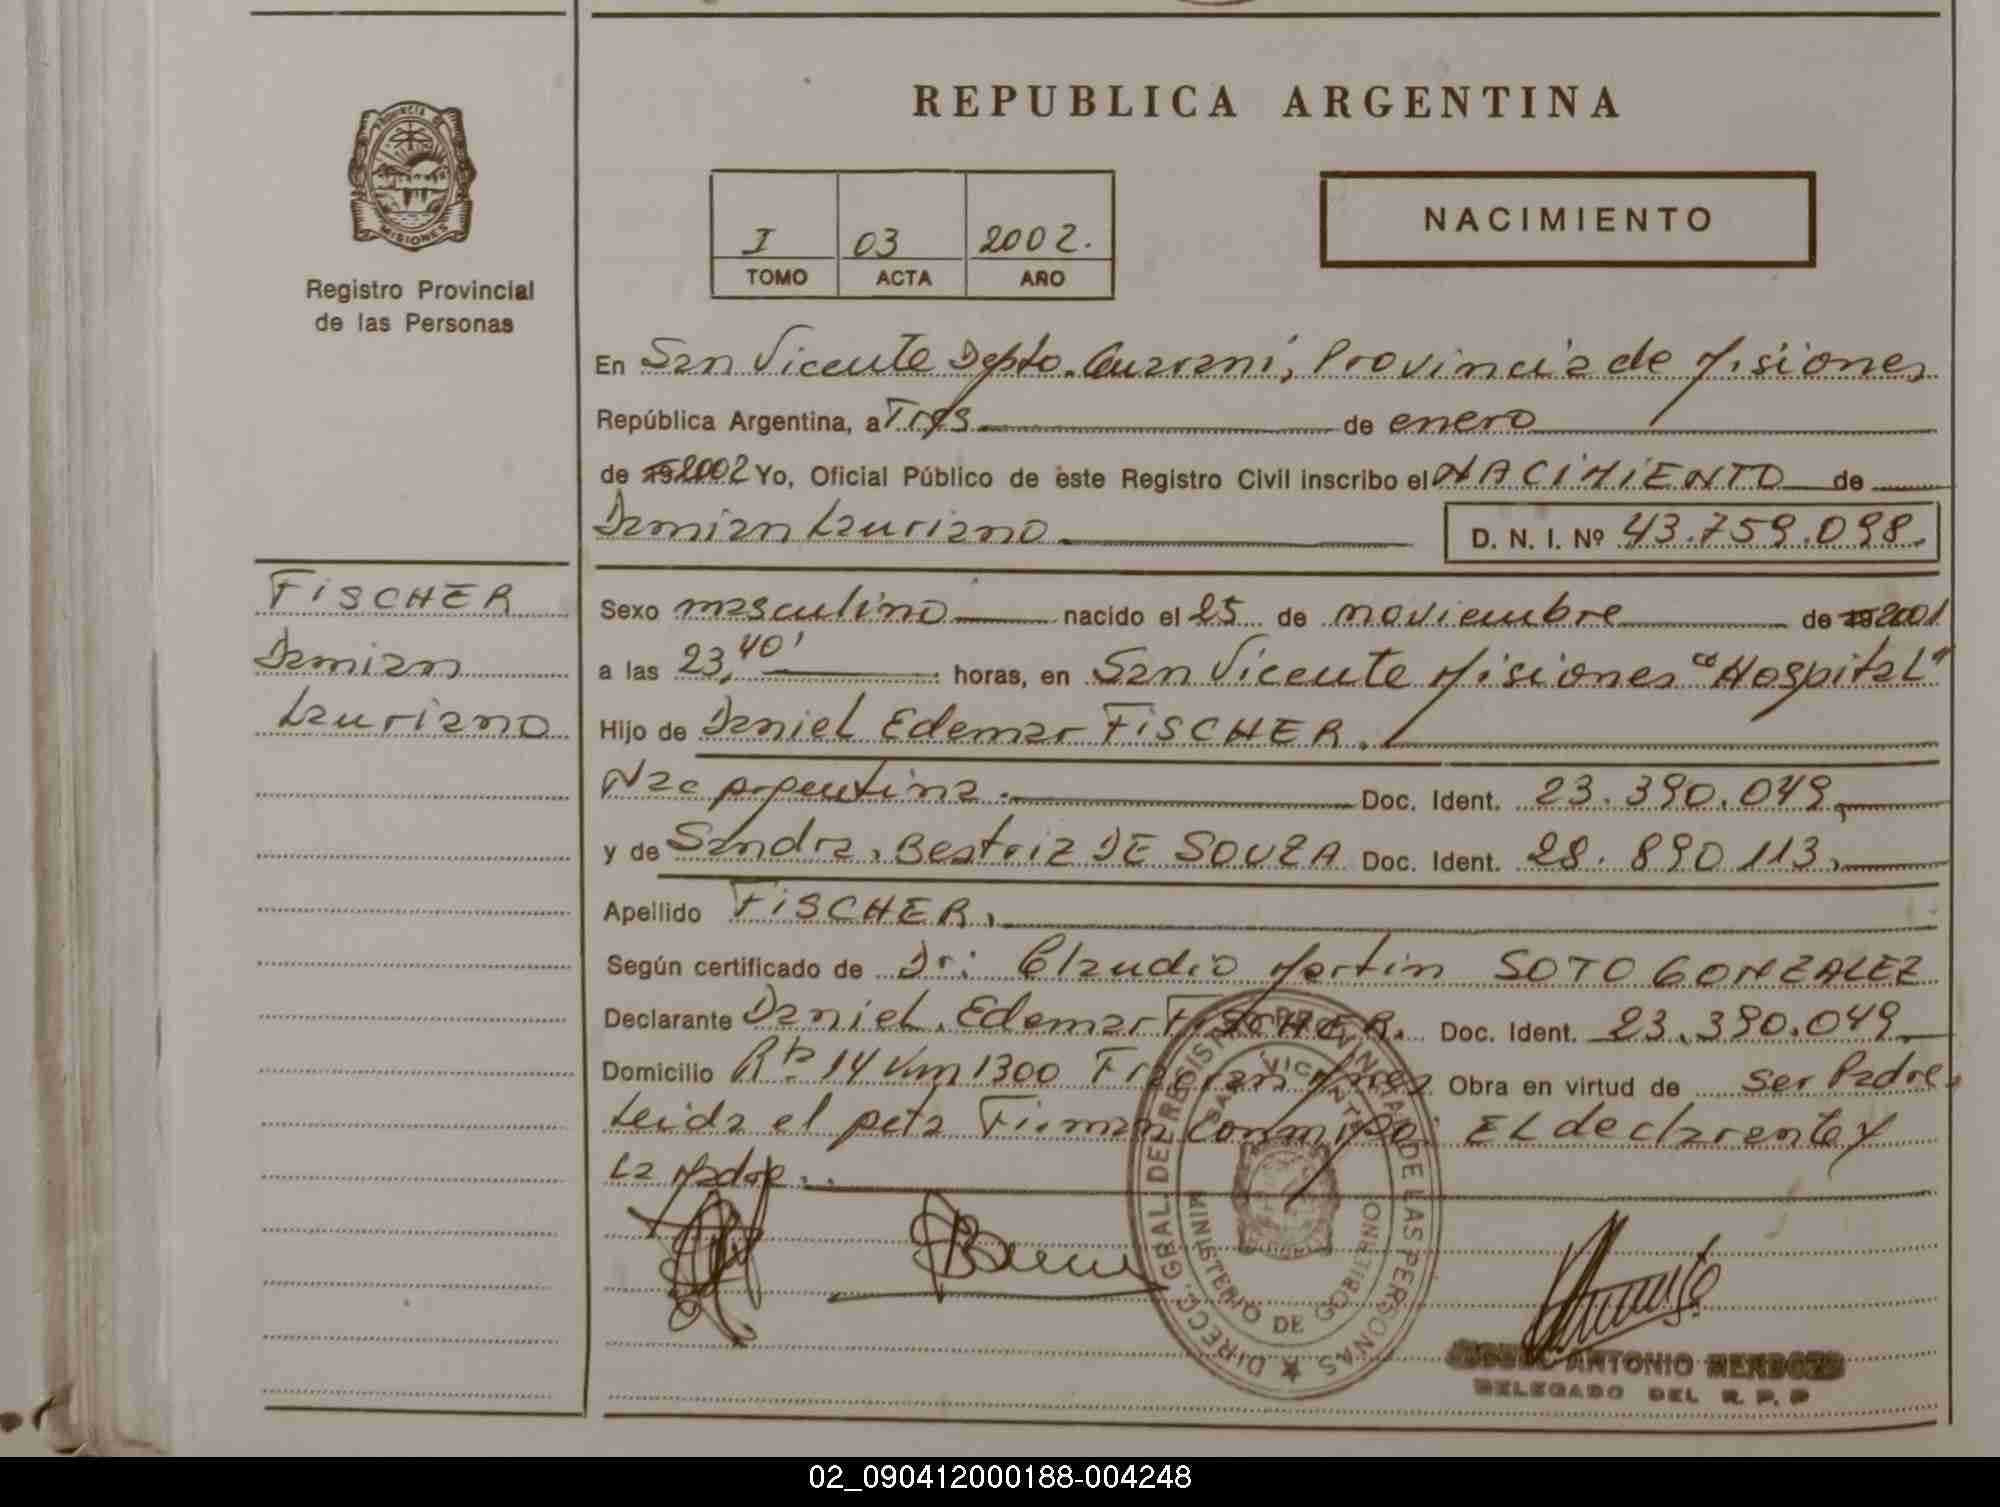 REPUBLICA ARGENTINA
PROVINCIA DE
MISIONES
Registro Provincial
de las Personas
I 03 2002.
TOMO ACTA AÑO
NACIMIENTO
En San Vicente Depto. Guaraní, Provincia de Misiones
República Argentina, a Tres de enero
de 19 2002 Yo, Oficial Público de este Registro Civil inscribo el NACIMIENTO de
Damian Lauriano
D. N. I. Nº 43.759.098.
FISCHER
Damian
Lauriano
Sexo masculino nacido el 25 de noviembre de 19 2001
a las 23,40' horas, en San Vicente Misiones "Hospital"
Hijo de Daniel Edemar FISCHER.
Nac Argentina. Doc. Ident. 23.390.049,
y de Sandra, Beatriz DE SOUZA Doc. Ident. 28.890.113,
Apellido FISCHER,
Según certificado de Dr: Claudio Martin SOTO GONZALEZ
Declarante Daniel, Edemar FISCHER. Doc. Ident. 23.390.049
Domicilio Rta 14 Km 1300 Obra en virtud de ser Padre,
Leida el acta Firman Conmigo: EL declarante y
La Madre.
DIRECC. GRAL. DEL REGISTRO PROVINCIAL DE LAS PERSONAS
SAN VICENTE
MINISTERIO DE GOBIERNO
ANTONIO MENDOZA
DELEGADO DEL R. P. P
02_090412000188-004248